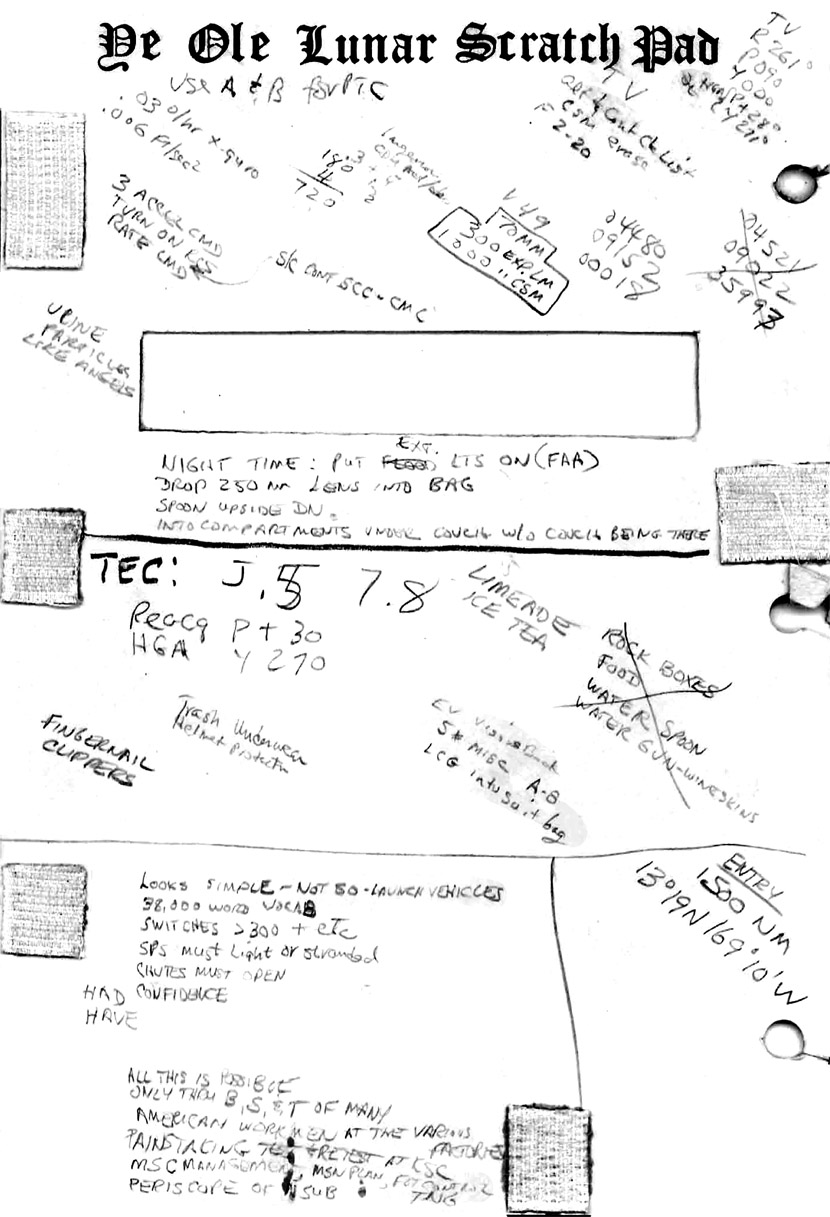 Ye Ole Lunar Scratch Pad
USE A & B for PTC
.03 o/hr x gyro
.006 ft/sec2
180
4
720
TV
CSM erase
F 2-20
TV
R 261°
P 090
Y 000
3 ACCEL CMD
TURN ON
RATE CMD
S/C CONT SCC - CMC
V49
70MM
300 EXP. LM
1000 " CSM
04480
09152
00018
04521
09022
35993
URINE
PARTICLES
LIKE ANGELS
EXT.
NIGHT TIME: PUT LTS ON (FAA)
DROP 250 mm LENS INTO BAG
SPOON UPSIDE DN.
INTO COMPARTMENTS UNDER COUCH W/O COUCH BEING THERE
TEC: J.5 7.8
Reacq P + 30
HGA Y 270
LIMEADE
ICE TEA
ROCK BOXES
FOOD
WATER SPOON
WATER GUN-WINESKINS
FINGERNAIL
CLIPPERS
Trash Underwear
Helmet Protector
5# MISC A-8
LCG into suit bag
ENTRY
1,500 NM
13°19'N 169°10'W
LOOKS SIMPLE - NOT SO - LAUNCH VEHICLES
38,000 WORD VOCAB
SWITCHES >300 + etc
SPS must light or stranded
CHUTES MUST OPEN
HAD CONFIDENCE
HAVE
ALL THIS IS POSSIBLE
ONLY THRU B, S, & T OF MANY
AMERICAN WORKMEN AT THE VARIOUS
FACTORIES
PAINSTAKING TEST & RETEST AT KSC
MSC MANAGEMENT, MSN PLAN, FLT CONTROL
TNG
PERISCOPE OF SUB